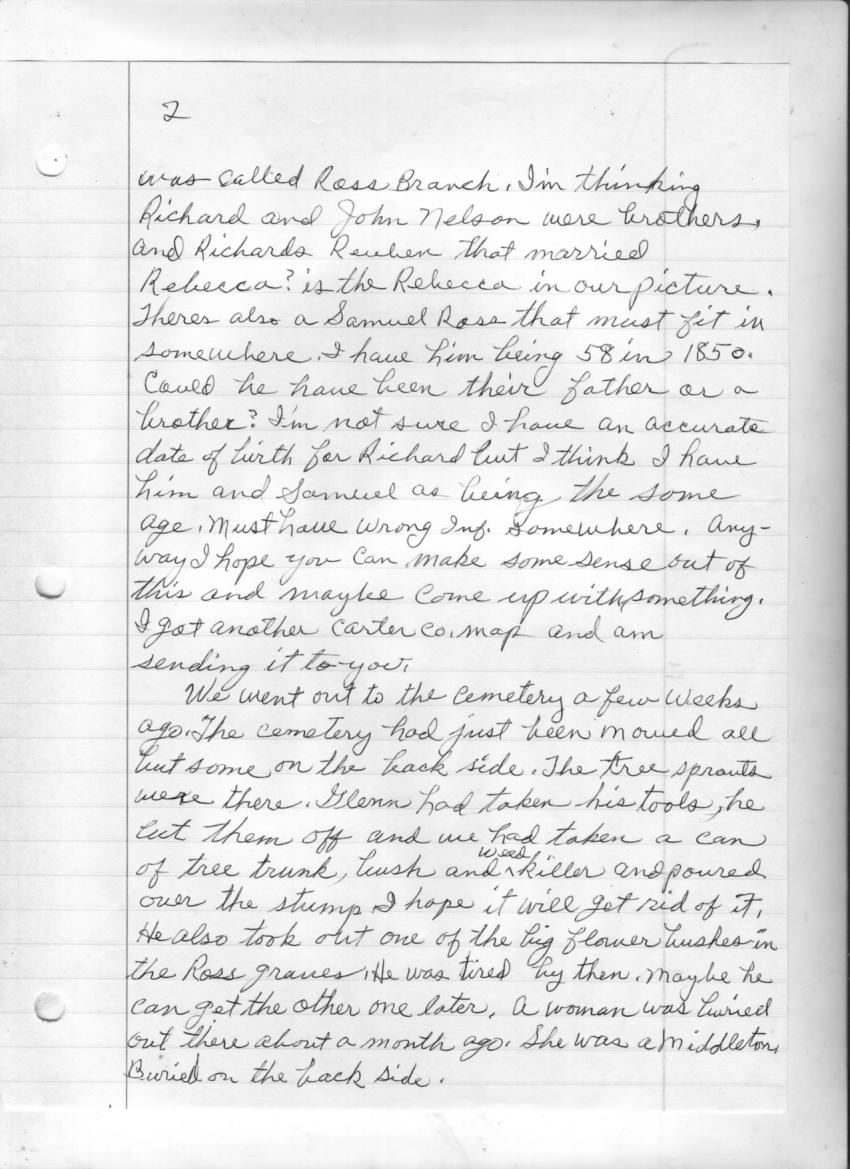 2
was called Ross Branch. I'm thinking
Richard and John Nelson were brothers,
and Richards Reuben that married
Rebecca? is the Rebecca in our picture.
Theres also a Samuel Ross that must fit in
somewhere. I have him being 58 in 1850.
Could he have been their father or a
brother? I'm not sure I have an accurate
date of birth for Richard but I think I have
him and Samuel as being the same
age. Must have wrong Inf. somewhere. Any-
way I hope you can make some sense out of
this and maybe come up with something.
I got another Carter co. map and am
sending it to you.
We went out to the cemetery a few weeks
ago. The cemetery had just been mowed all
but some on the back side. The tree sprouts
were there. Glenn had taken his tools, he
cut them off and we had taken a can
of tree trunk, bush and weed killer and poured
over the stump I hope it will get rid of it.
He also took out one of the big flower bushes in
the Ross graves. He was tired by then. Maybe he
can get the other one later. A woman was buried
out there about a month ago. She was a Middleton.
Buried on the back side.